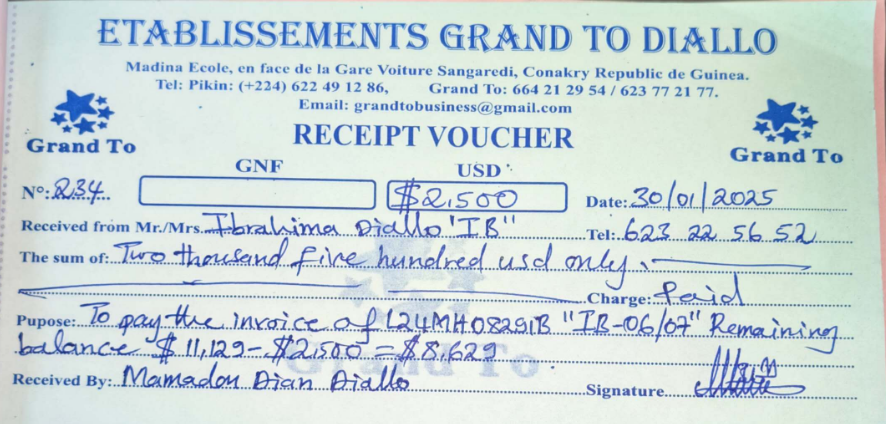 ETABLISSEMENTS GRAND TO DIALLO
Madina Ecole, en face de la Gare Voiture Sangaredi, Conakry Republic de Guinea.
Tel: Pikin: (+224) 622 49 12 86, Grand To: 664 21 29 54 / 623 77 21 77.
Email: grandtobusiness@gmail.com
Grand To
RECEIPT VOUCHER
Grand To
GNF USD
Nº: 234 $2,500 Date: 30/01/2025
Received from Mr./Mrs. Ibrahima Diallo "IB" Tel: 623 22 56 52
The sum of: Two thousand five hundred usd only.
Charge: Paid
Pupose: To pay the invoice of L24MH0829IB "IB-06/07" Remaining
balance $11,129-$2,500=$8,629
Grand To
Received By: Mamadou Dian Diallo Signature